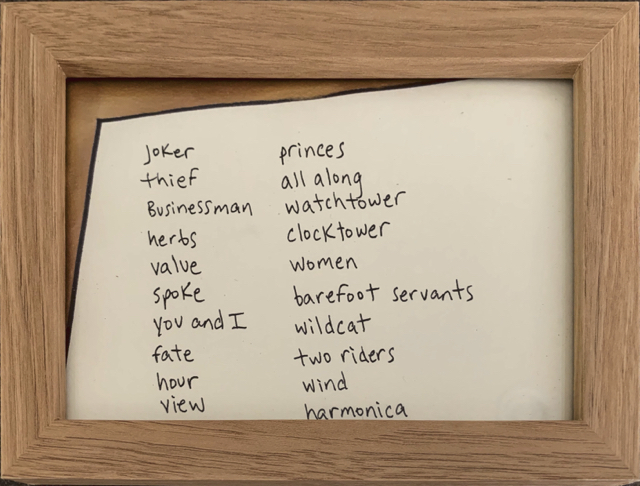 Joker
thief
Businessman
herbs
value
spoke
you and I
fate
hour
view
princes
all along
watchtower
clocktower
women
barefoot servants
wildcat
two riders
wind
harmonica